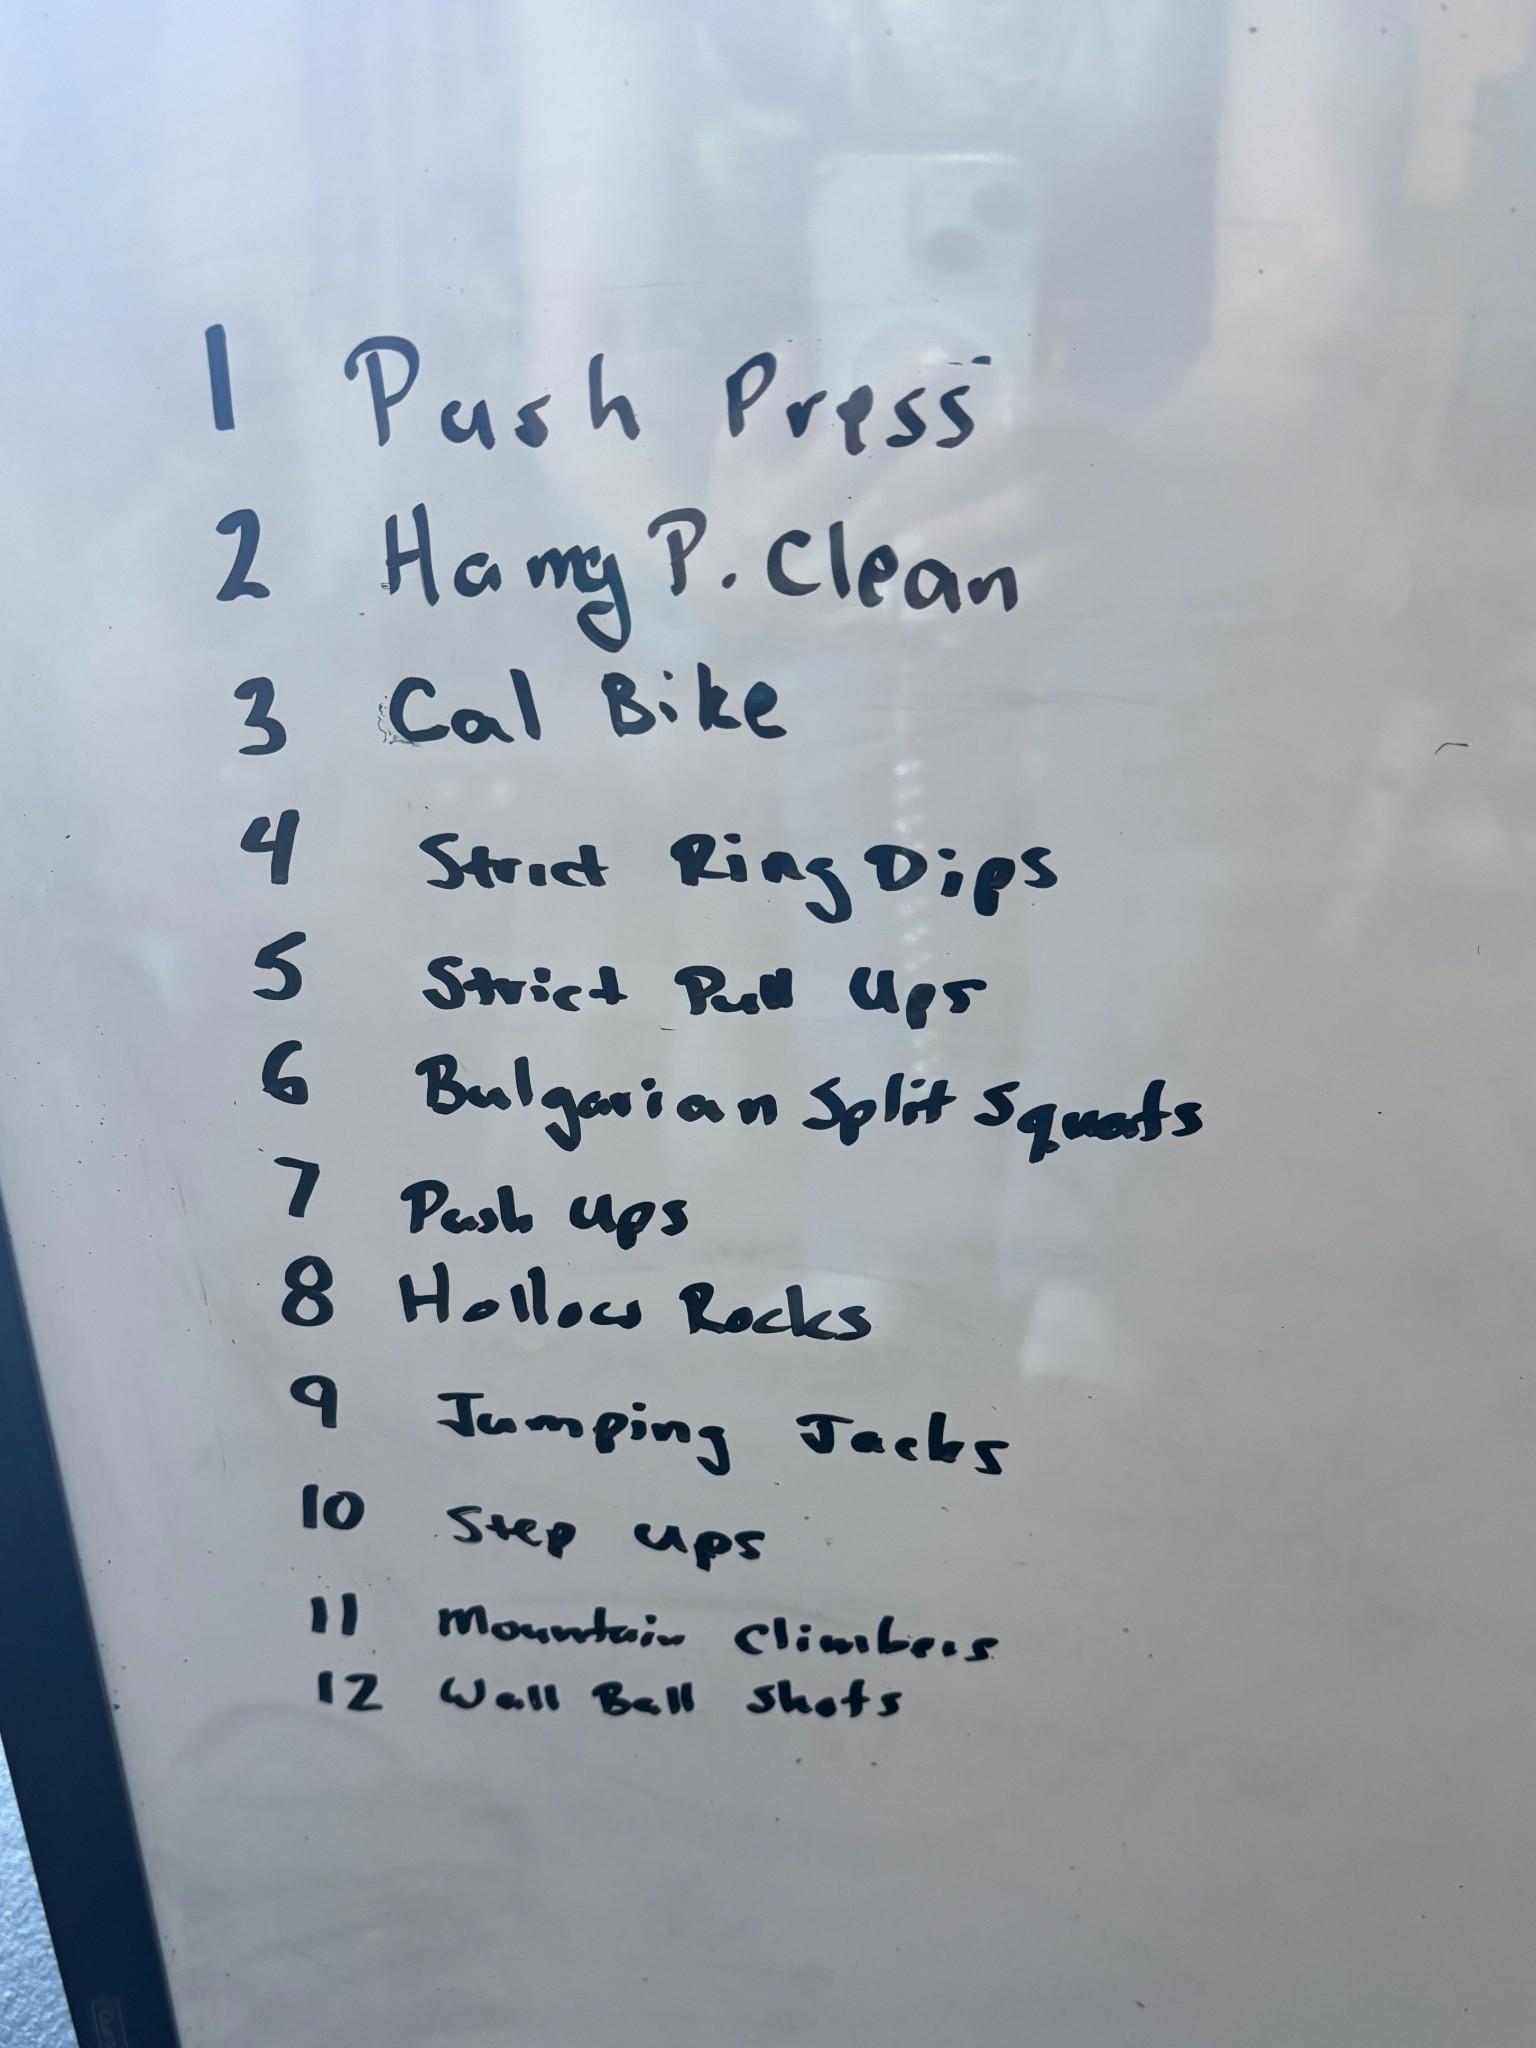 1 Push Press
2 Hang P. Clean
3 Cal Bike
4 Strict Ring Dips
5 Strict Pull Ups
6 Bulgarian Split Squats
7 Push Ups
8 Hollow Rocks
9 Jumping Jacks
10 Step ups
11 Mountain Climbers
12 Wall Ball Shots